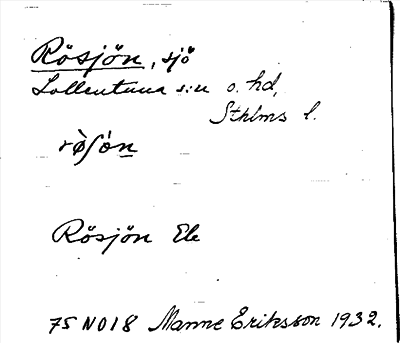 Rösjön, sjö
Sollentuna s:n o. hd,
Sthlms l.
rø̀ʃò̀n
Rösjön Ek
75 NO18 Manne Eriksson 1932.